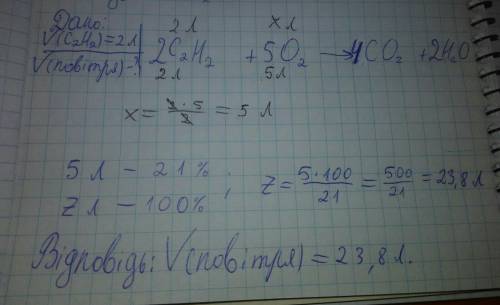 Дано:
V(C₂H₂)=2л
V(повітря)-?
2л xл
2C₂H₂ + 5O₂ → 4CO₂ + 2H₂O
2л 5л
x = 2·5/2 = 5 л
5л – 21%
zл – 100% ; z = 5·100/21 = 500/21 = 23,8 л
Відповідь: V(повітря) = 23,8 л.